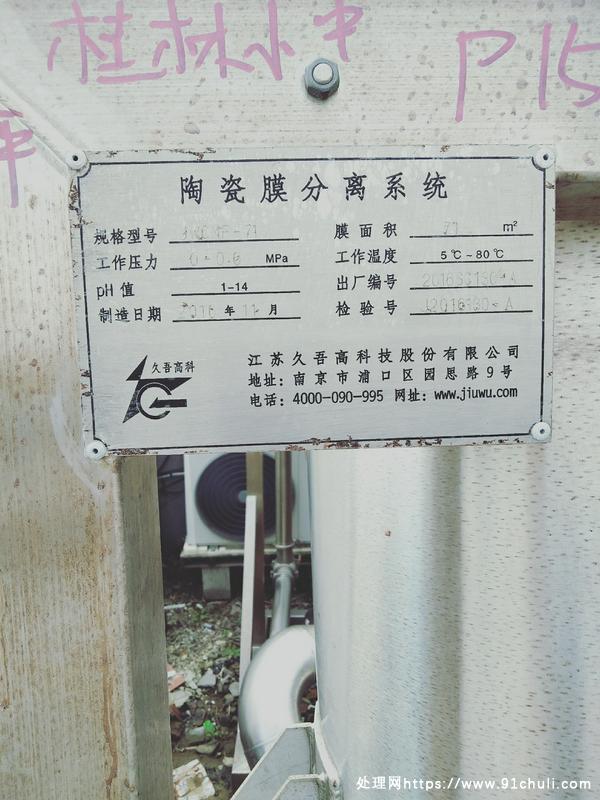 桂林小中
P15
陶瓷膜分离系统
规格型号 膜面积 71 m²
工作压力 0-0.6 MPa 工作温度 5℃~80℃
pH值 1-14 出厂编号
制造日期 2016 年 11 月 检验号
久吾高科
江苏久吾高科技股份有限公司
地址: 南京市浦口区园思路9号
电话: 4000-090-995 网址: www.jiuwu.com
处理网https://www.91chuli.com